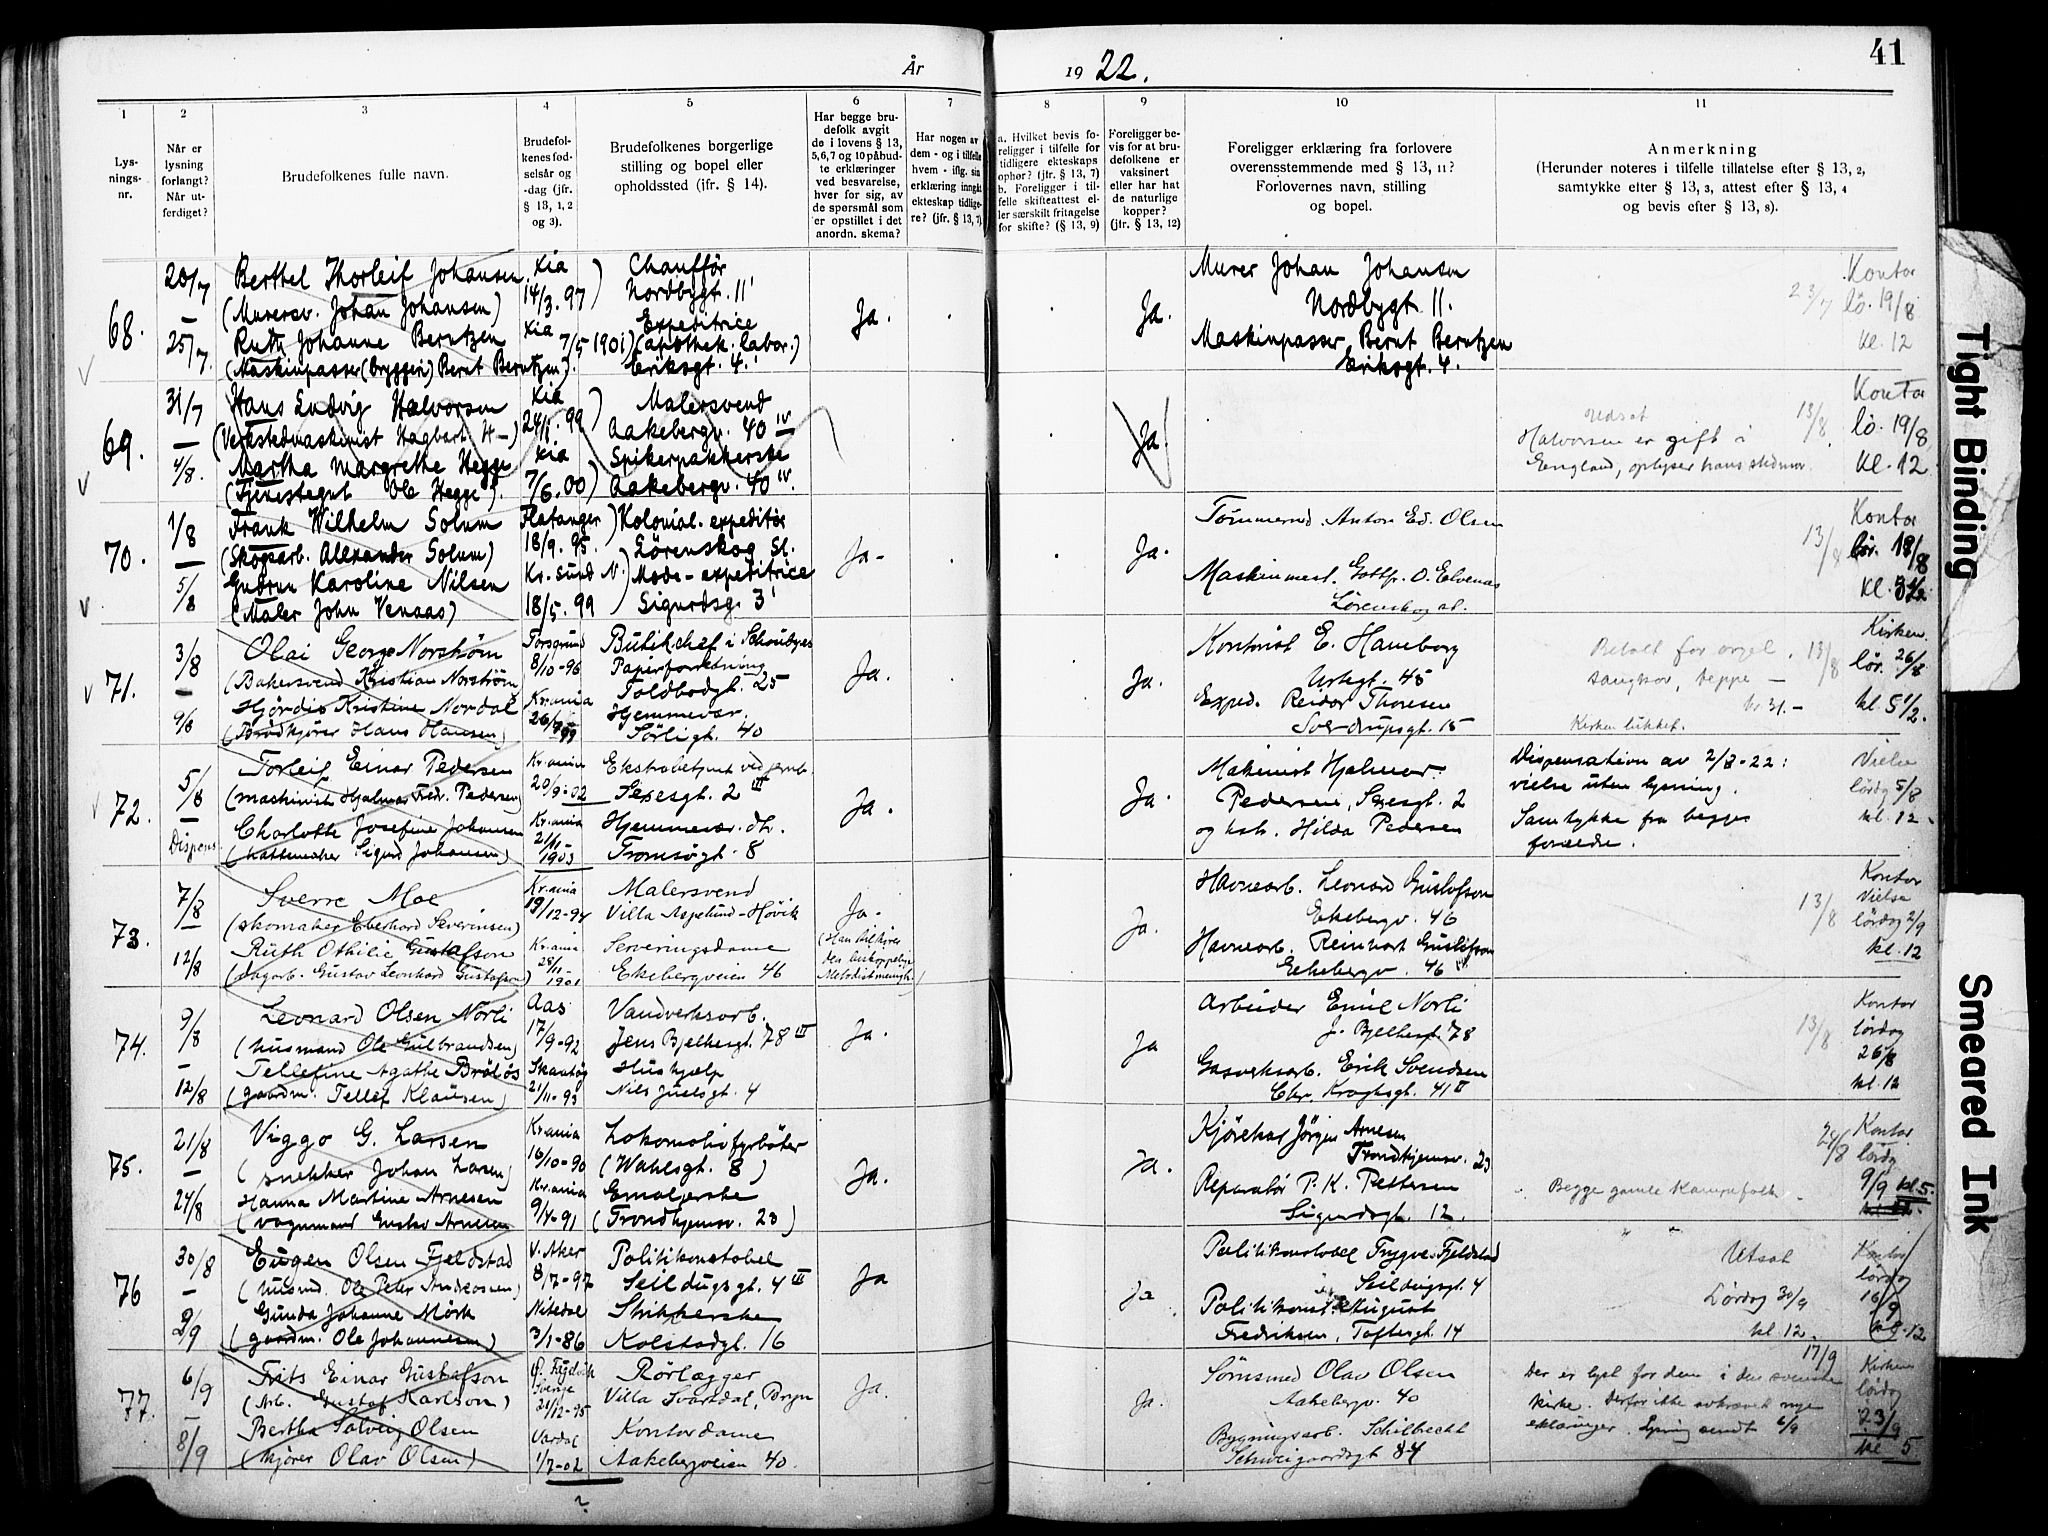 År 1922.
41
1
2
3
4
5
6
7
8
9
10
11
Lys-
nings-
nr.
Når er
lysning
forlangt?
Når ut-
ferdiget?
Brudefolkenes fulle navn.
Brudefol-
kenes fød-
selsår og
-dag (jfr.
§ 13, 1, 2
og 3).
Brudefolkenes borgerlige
stilling og bopel eller
opholdssted (jfr. § 14).
Har begge bru-
defolk avgit
de i lovens § 13,
5, 6, 7 og 10 påbud-
te erklæringer
ved besvarelse,
hver for sig, av
de spørsmål som
er opstillet i det
anordn. skema?
Har nogen av
dem - og i tilfelle
hvem - iflg. sin
erklæring inngåt
ekteskap tidlige-
re? (jfr. § 13, 7)
a. Hvilket bevis fo-
religger i tilfelle for
tidligere ekteskaps
ophør? (jfr. § 13, 7)
b. Foreligger i til-
felle skifteattest el-
ler særskilt fritagelse
for skifte? (§ 13, 9)
Foreligger be-
vis for at bru-
defolkene er
vaksinert
eller har hat
de naturlige
kopper?
(jfr. § 13, 12)
Foreligger erklæring fra forlovere
overensstemmende med § 13, 11?
Forlovernes navn, stilling
og bopel.
Anmerkning
(Herunder noteres i tilfelle tillatelse efter § 13, 2,
samtykke etter § 13, 3, attest efter § 13, 4
og bevis efter § 13, 8).
68.
20/7
–
25/7
Berthel Thorleif Johansen
(Murersv. Johan Johansen)
Ruth Johanne Berntzen
(Maskinpasser (bryggeri) Bernt Berntzen).
Kia
14/3. 97
Kia
7/5 1901
Chauffør
Nordbygt. 11
Expeditrice
(apothek. labor.)
Eriksgt. 4.
Ja.
Ja.
Murer Johan Johansen
Nordbygt 11.
Maskinpasser Bernt Berntzen
Eriksgt. 4.
23/7
Kontor
lö. 19/8
Kl. 12
69.
31/7
–
4/8.
Hans Ludvig Halvorsen
(Verkstedmaskinist Hagbart H–)
Martha Margrethe Hegge
(Tjenestegut Ole Hegge).
Kia
24/1. 99
Kia
7/6. 00
Malersvend
Aakebergv. 40 IV
Spikerpakkerske
Aakebergv. 40 IV.
Ja
Udsat
Halvorsen er gift i
England, oplyser hans stedmor.
13/8
Kontor
lö. 19/8
Kl. 12
70.
1/8
–
5/8
Frank Wilhelm Solum
(Skogsarb. Alexander Solum)
Gudrun Karoline Nilsen
(Maler John Venaas)
Flatanger
18/9. 95.
Kr. sund N.
18/5. 99
Kolonial. expeditør
Lörenskog st.
Mode-expeditrice
Sigurdsg. 3
Ja-
Ja.
Tømmermd. Anton Ed. Olsen
Maskinmest. Gottfr. O. Elvenas
Lörenskog st.
13/8
Kontor
lör. 18/8
Kl. 3 1/2
71.
3/8
–
9/8
Olai George Norström
(Bakersvend Kristian Norström)
Hjördis Kristine Nordal
(Brödkjører Hans Hansen)
Porsgrund
8/10-96
Kr.ania
Butikchef i Schoubyes
Papirforretning
Toldbodgt. 25
Hjemmevær.
Sörligt. 40
Ja.
Ja.
Kontorist E. Haneborg
Urtegt. 45
Exped. Reidar Thoresen
Sverdrupsgt. 15
Betalt for orgel,
sangkor, teppe –
kr 31.–
Kirken lukket.
13/8
Kirken.
lör. 26/8
kl. 5 1/2.
72.
5/8
–
Dispens.
Torleif Einar Pedersen
(maskinist Hjalmar Fredr. Pedersen)
Charlotte Josefine Johansen
(hattemaker Sigurd Johansen)
Kr.ania
20/9-02
Kr.ania
2/11-
1903
Ekstrabetjent ved jernb.
Sexesgt. 2 III
Hjemmevær. dtr.
Tromsøgt. 8
Ja.
Ja.
Makinist Hjalmar
Pedersen, Sexesgt. 2
og hstr. Hilda Pedersen
Dispensation av 2/8-22:
vielse uten lysning.
Samtykke fra begges
forældre.
Vielse
lördg 5/8
kl. 12.
73.
7/8
–
12/8
Sverre Moe
(skomaker Eberhard Severinsen)
Ruth Othilie Gustafson
(dagarb. Gustav Leonhard Gustafson)
Kr.ania
19/12-94
Kr.ania
28/11-
1901
Malersvend
Villa Aspelund-Høvik
Serveringsdame
Ekebergveien 46
Ja-
(Han tilhører
den biskoppelige
Metodistmenigh.)
Ja.
Havnearb. Leonard Gustafson
Ekebergv. 46
Havnearb. Reinhart Gustafson
Ekebergv. 46
13/8
Kontor
Vielse
lördag 2/9
kl. 12
74.
9/8
–
12/8
Leonard Olsen Norli
(husmand Ole Gulbrandsen)
Tellefine Agathe Bråtös
(gaardm. Tellef Klausen)
Aas
17/9-92
21/11-93
Vandverksarb.
Jens Bjelkesgt. 78 III
Hushjælp
Nils Juelsgt. 4
Ja.
Ja
Arbeider Emil Norli
J. Bjelkesgt. 78
Gasverksarb. Erik Svendsen
Chr. Kroghsgt. 41 II
13/8
Kontor
lördag
26/8
kl. 12
75.
21/8
–
24/8
Viggo G. Larsen
(snekker Johan Larsen)
Hanna Martine Arnesen
(vognmand Gustav Arnesen
Kr.ania
16/10-90
Kr.ania
9/4-91
Lokomotivfyrböter
(Wahlsgt. 8)
Emaljerske
(Trondhjemsv. 23)
Ja.
Ja.
Kjörekar Jörgen Arnesen
Trondhjemsv. 23
Reparatör P. K. Pettersen
Sigurdsgt. 12.
Begge gamle Kampefolk –
24/8
Kontor
lördg
9/9 kl. 5.
76
30/8
–
2/9
Eugen Olsen Fjeldstad
(husmd. Ole Peter Andersen)
Gunda Johanne Mörk
(gaardm. Ole Johannesen)
V. Aker
8/7-97
Nitedal
3/1-86
Politikonstabel
Seildugsgt. 4 III
Strikkerske
Kolstadgt. 16
Ja
Ja
Politikonstabel Trygve Fjeldstad
Seildugsgt. 4
Politikonst. August
Fredriksen, Toftesgt. 14
Utsat
Lördag 30/9
kl. 12.
Kontor
lördag
16/9
kl. 12
77.
6/9
–
8/9
Frits Einar Gustafson
(Arb. Gustaf Karlson)
Bertha Solveig Olsen
(kjører Olav Olsen)
Sverige
21/12-95
Vardal
1/7-02
Rörlægger
Villa Svartdal, Bryn
Kontordame
Aakebergveien 40.
Ja.
Ja.
Olav Olsen
Aakebergv. 40
Bygningsarb. Schilbecht
Schweigaardsgt 84
17/9
Der er lyst for dem i den svenske
kirke. Derfor ikke avkrævet nye
eklæringer. Lysning sendt 6/9
Kirken
lördag
23/9
kl. 5
Tight Binding
Smeared Ink